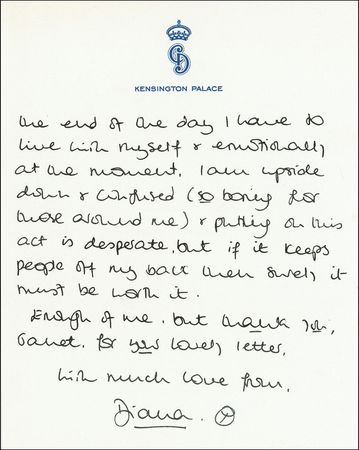 KENSINGTON PALACE
the end of the day I have to
live with myself & emotionally
at the moment, I am upside
down & confused (so boring for
those around me) & putting on this
act is desperate, but if it keeps
people off my back then surely it
must be worth it.
Enough of me, but thank you,
Janet, for your lovely letter,
with much love from,
Diana. x